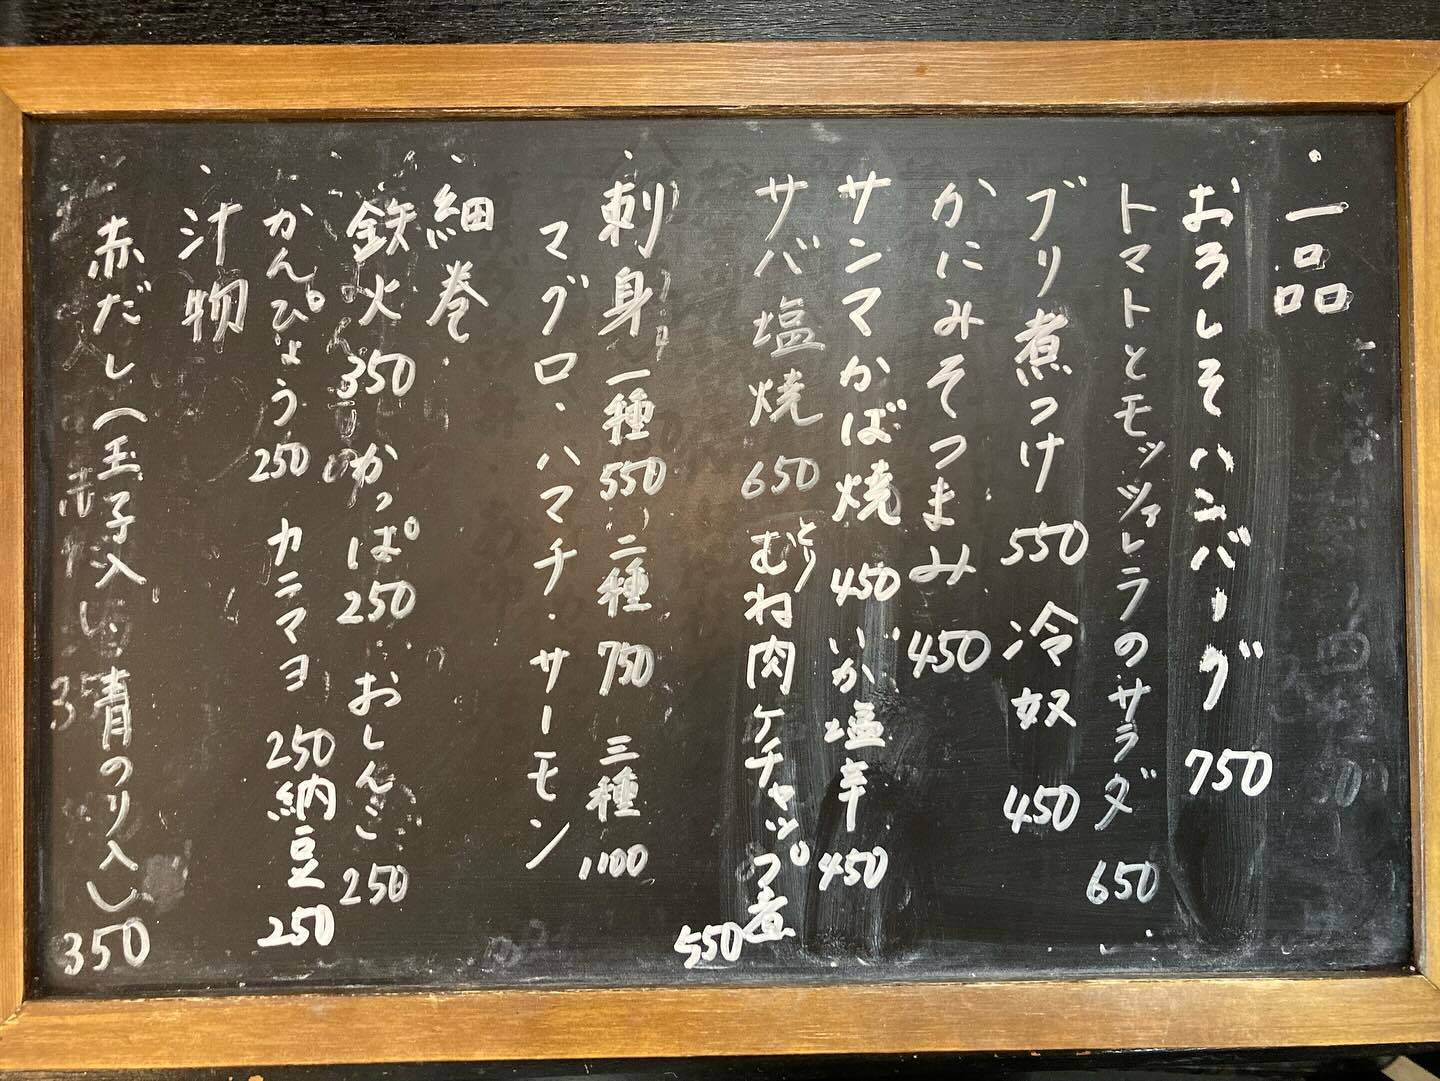 ・一品
おろしそハンバーグ 750
トマトとモッツァレラのサラダ 650
ブリ煮つけ 550 冷奴 450
かにみそつまみ 450
サンマかば焼 450 いか塩辛 450
サバ塩焼 650 とりむね肉ケチャップ煮 550
・刺身 一種 550 二種 750 三種 1100
マグロ、ハマチ・サーモン
・細巻
鉄火 350 かっぱ 250 おしんこ 250
かんぴょう 250 カニマヨ 250 納豆 250
・汁物
赤だし(玉子入 青のり入) 350